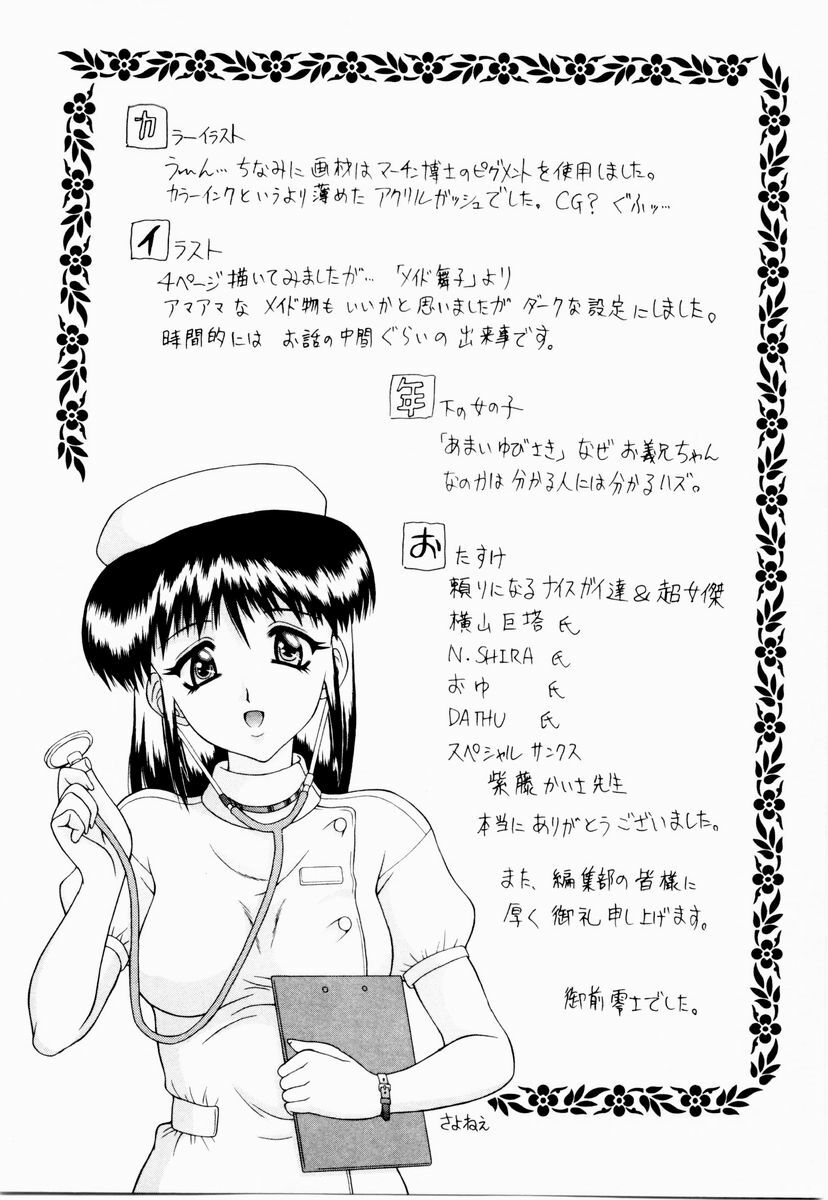 カラーイラスト
う～ん… ちなみに 画材は マーチン博士のピグメントを使用しました。
カラーインクというより薄めた アクリルガッシュでした。CG? ぐふッ…
イラスト
4ページ描いてみましたが… 「メイド舞子」より
アマアマな メイド物も いいかと思いましたが ダークな設定にしました。
時間的には お話の中間ぐらいの 出来事です。
年下の女の子
「あまいゆびさき」なぜ お義兄ちゃん
なのかは 分かる人には分かるハズ。
おたすけ
頼りになるナイスガイ達&超女傑
横山巨塔 氏
N.SHIRA 氏
おゆ 氏
DATHU 氏
スペシャルサンクス
紫藤かいさ先生
本当に ありがとうございました。
また、編集部の皆様に
厚く 御礼申し上げます。
御前零士でした。
さよねえ